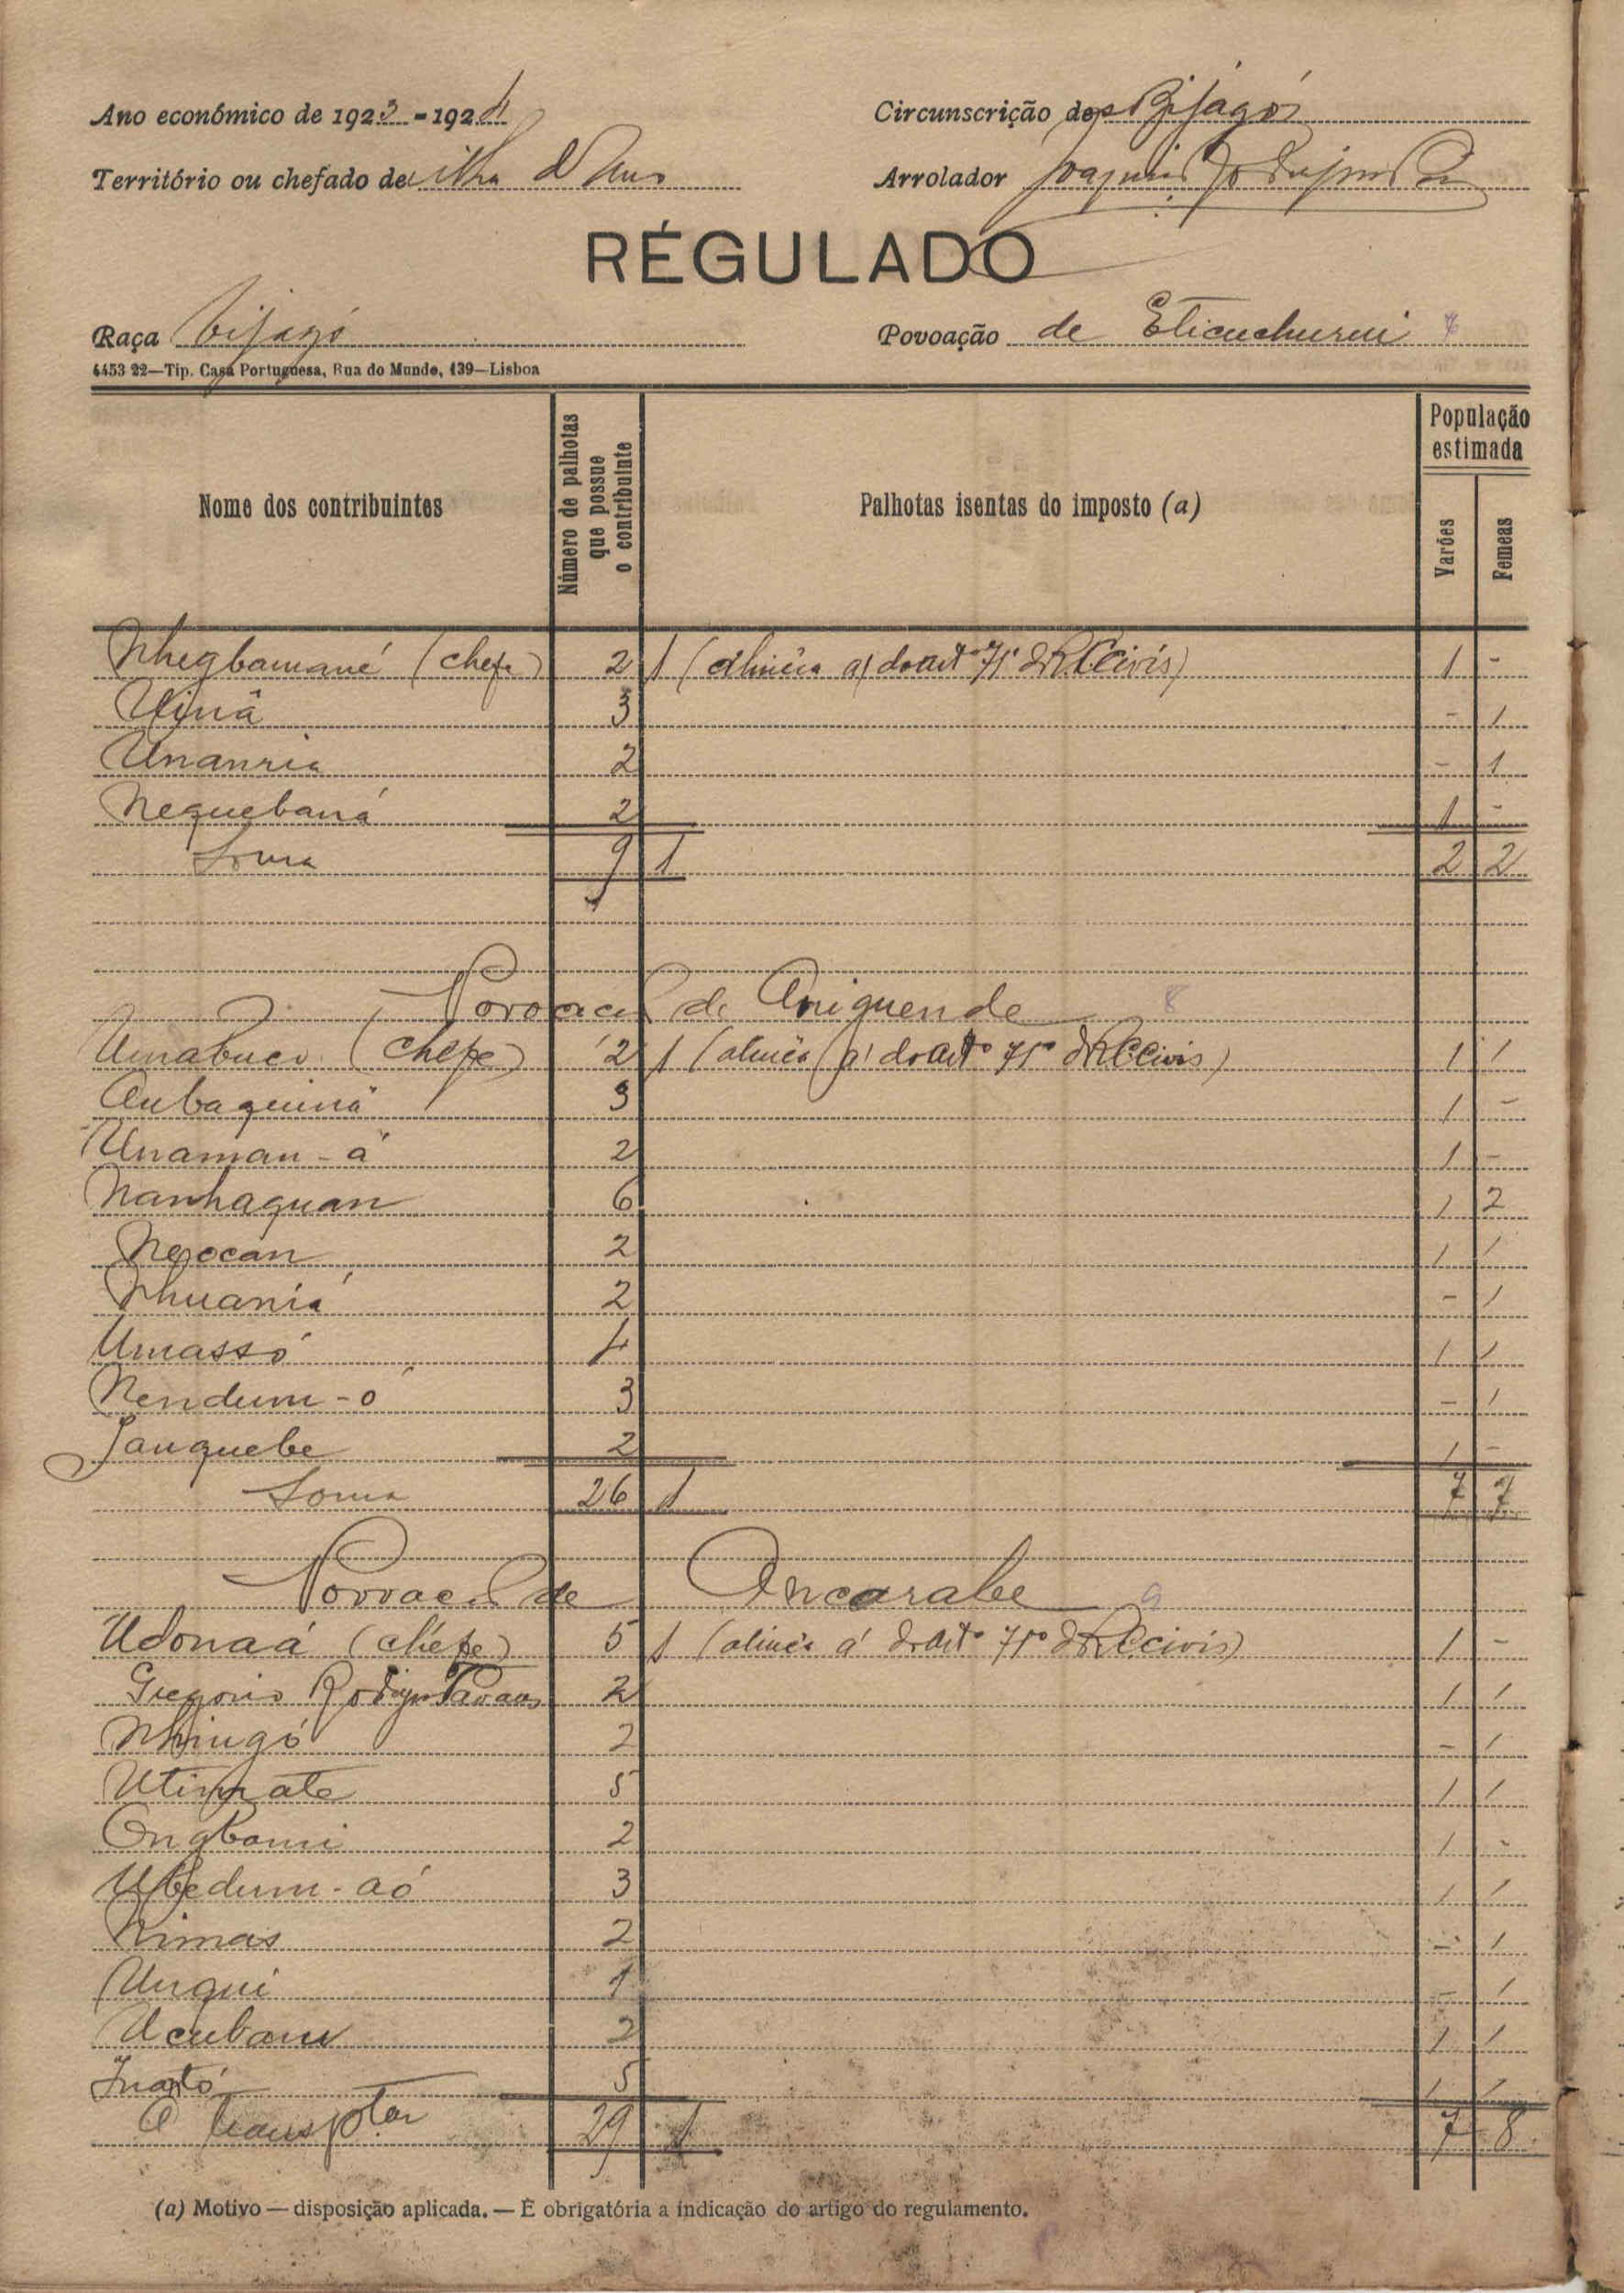 Ano económico de 1923-1924
Circunscrição dos Bijagós
Território ou chefado de ilha
Arrolador Joaquim
RÉGULADO
Raça bijagó
Povoação de Eticuchurui 7
4453 22—Tip. Casa Portuguesa, Rua do Mundo, 139—Lisboa
Nome dos contribuintes
Número de palhotas que possue o contribuinte
Palhotas isentas do imposto (a)
População estimada
Varões
Femeas
Nhegbamané (chefe) 2 1 (alinéa a) do artº 71º d R.C. Civis) 1 -
3 - 1
Unanria 2 - 1
Nequebaná 2 1 -
Soma 9 1 2 2
Povoação de Aniquende 8
Umabuco (chefe) 2 1 (alinéa a) do artº 71º d R.C. Civis) 1 1
Aubaquiná 3 1 -
Unaman-á 2 1 -
Nanhaquan 6 1 2
Negocan 2 1 1
Nhuaniá 2 - 1
Umassó 4 1 1
Nendum-ó 3 - 1
Janquebe 2 1 -
Soma 26 1 7 7
Povoação de Ancarabe 9
Udonaá (chefe) 5 1 (alinéa a) do artº 71º d R.C. Civis) 1 -
Gregorio Rodrigues Tavares 2 1 1
Nhingó 2 - 1
Utimate 5 1 1
Ongbami 2 1 -
Ubedum-aó 3 1 1
Nimas 2 - 1
Unqui 1 - 1
Acubam 2 1 1
Inató 5 1 1
A transportar 29 1 7 8
(a) Motivo — disposição aplicada. — É obrigatória a indicação do artigo do regulamento.